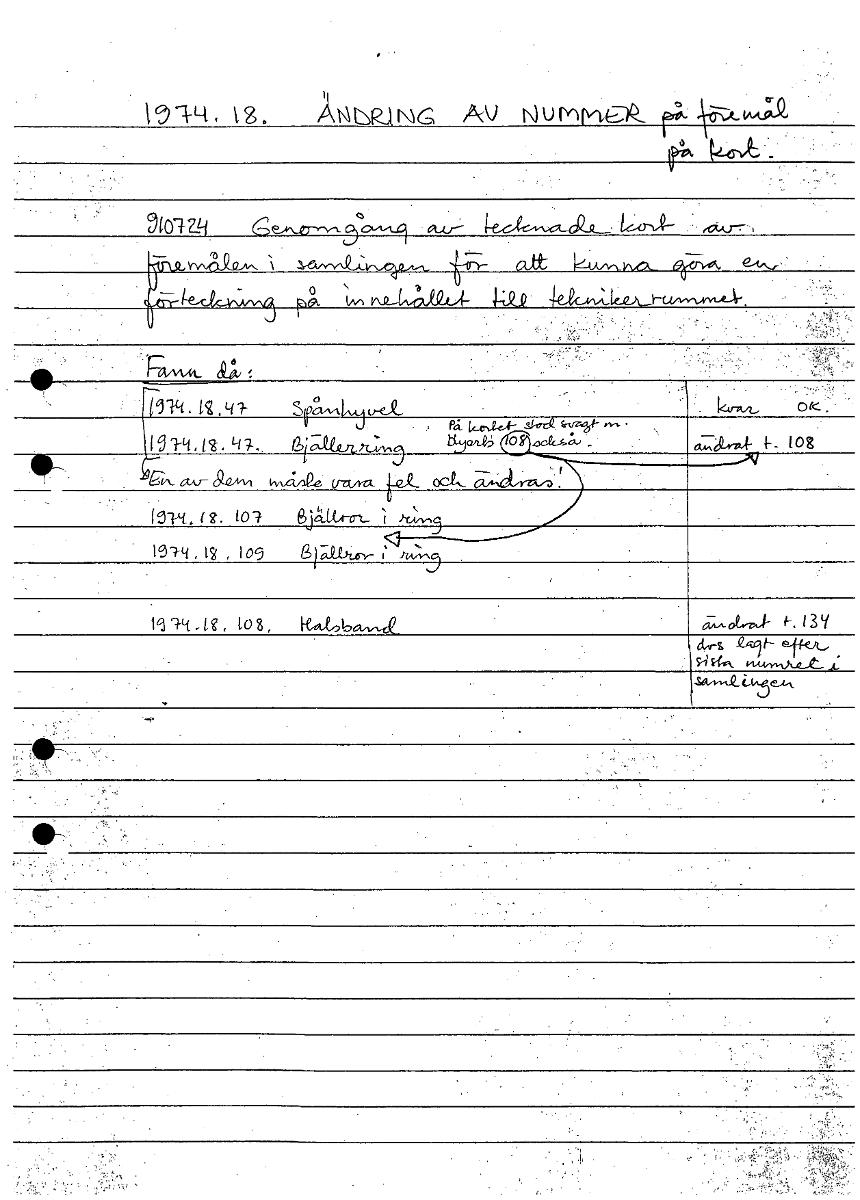 1974.18. ÄNDRING AV NUMMER på föremål
på kort.
910724 Genomgång av tecknade kort av
föremålen i samlingen för att kunna göra en
förteckning på innehållet till teknikerrummet.
Fann då:
1974.18.47 Spånhyvel kvar OK.
På kortet stod svagt m.
1974.18.47. Bjällerring blyerts 108 också. ändrat t. 108
En av dem måste vara fel och ändras!
1974.18.107 Bjällror i ring
1974.18.109 Bjällror i ring
1974.18.108. Halsband ändrat t. 134
dvs lagt efter
sista numret i
samlingen